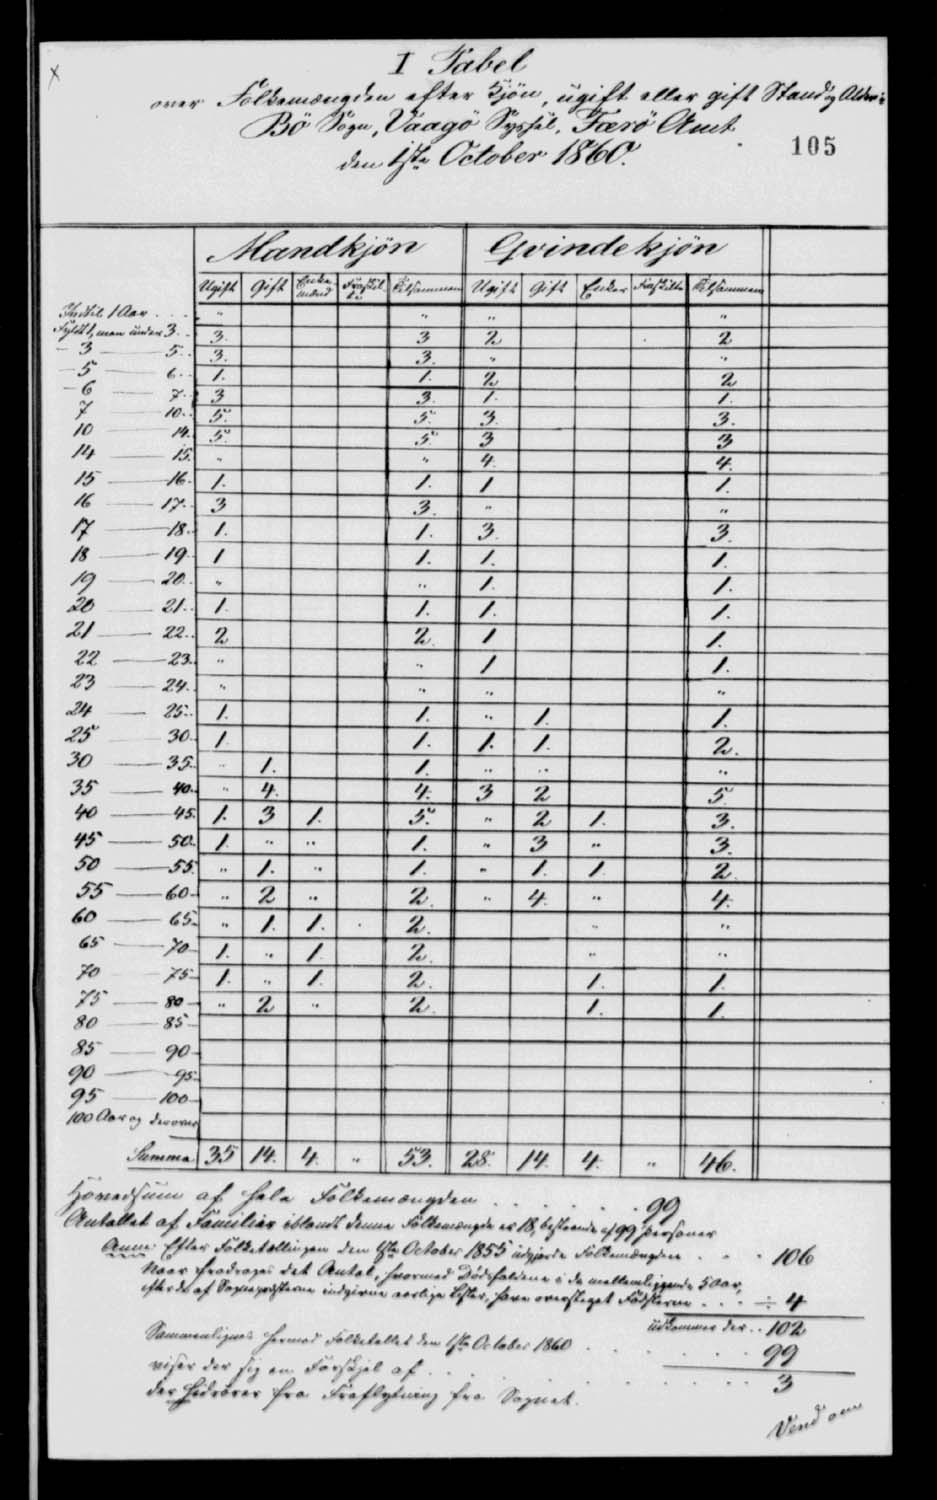 I Tabel
over Folkemængden efter Kjön, ugift eller gift Stand og Alder i
Bö Sogn, Vaagö Syssel, Færö Amt
den 1ste October 1860.
105
Mandkjön Qvindekjön
Ugift Gift Enkemænd Fraskilte Tilsammen Ugift Gift Enker Fraskilte Tilsammen
Indtil 1 Aar . . . " " " "
Fyldt 1, men under 3. . 3. 3 2 2
— 3 — 5. . 3. 3. " "
— 5 — 6. . 1. 1. 2 2
— 6 — 7. . 3 3. 1. 1.
7 — 10. . 5. 5. 3. 3.
10 — 14. 5. 5. 3 3
14 — 15. " " 4. 4.
15 — 16. 1. 1. 1 1.
16 — 17. 3 3. " "
17 — 18. 1. 1. 3. 3.
18 — 19. 1 1. 1. 1.
19 — 20. " " 1. 1.
20 — 21. 1. 1. 1. 1.
21 — 22. 2 2. 1 1.
22 — 23. " " 1 1.
23 — 24. " " " "
24 — 25. 1. 1. " 1. 1.
25 — 30. 1. 1. 1. 1. 2.
30 — 35. " 1. 1. " " "
35 — 40. " 4. 4. 3 2 5.
40 — 45. 1. 3 1. 5. " 2 1. 3.
45 — 50. 1. " " 1. " 3 " 3.
50 — 55. " 1. " 1. " 1. 1. 2.
55 — 60 " 2 " 2. " 4. " 4.
60 — 65. " 1. 1. . 2. " "
65 — 70 1. " 1. 2. " "
70 — 75 1. " 1. 2. 1. 1.
75 — 80 " 2 " 2. 1. 1.
80 — 85
85 — 90
90 — 95
95 — 100
100 Aar og derover
Summa 35 14. 4. " 53. 28. 14. 4. " 46.
Hovedsum af hele Folkemængden . . . . . . 99
Antallet af Familier iblandt denne Folkemængde er 18, bestaaende af 99 Personer
Anm. Efter Folketællingen den 1ste October 1855 udgjorde Folkemængden . . . 106
Naar fradrages det Antal, hvormed Dödsfaldene i de mellemliggende 5 Aar,
efter de af Sognepræsterne indgivne aarlige Lister, have oversteget Födslerne . . . ÷ 4
udkommer der . . 102
Sammenlignes hermed Folketallet den 1ste October 1860 . . . . . . 99
viser der sig en Forskjel af . . . . . . 3
der hidrörer fra Fraflytning fra Sognet.
Vend om